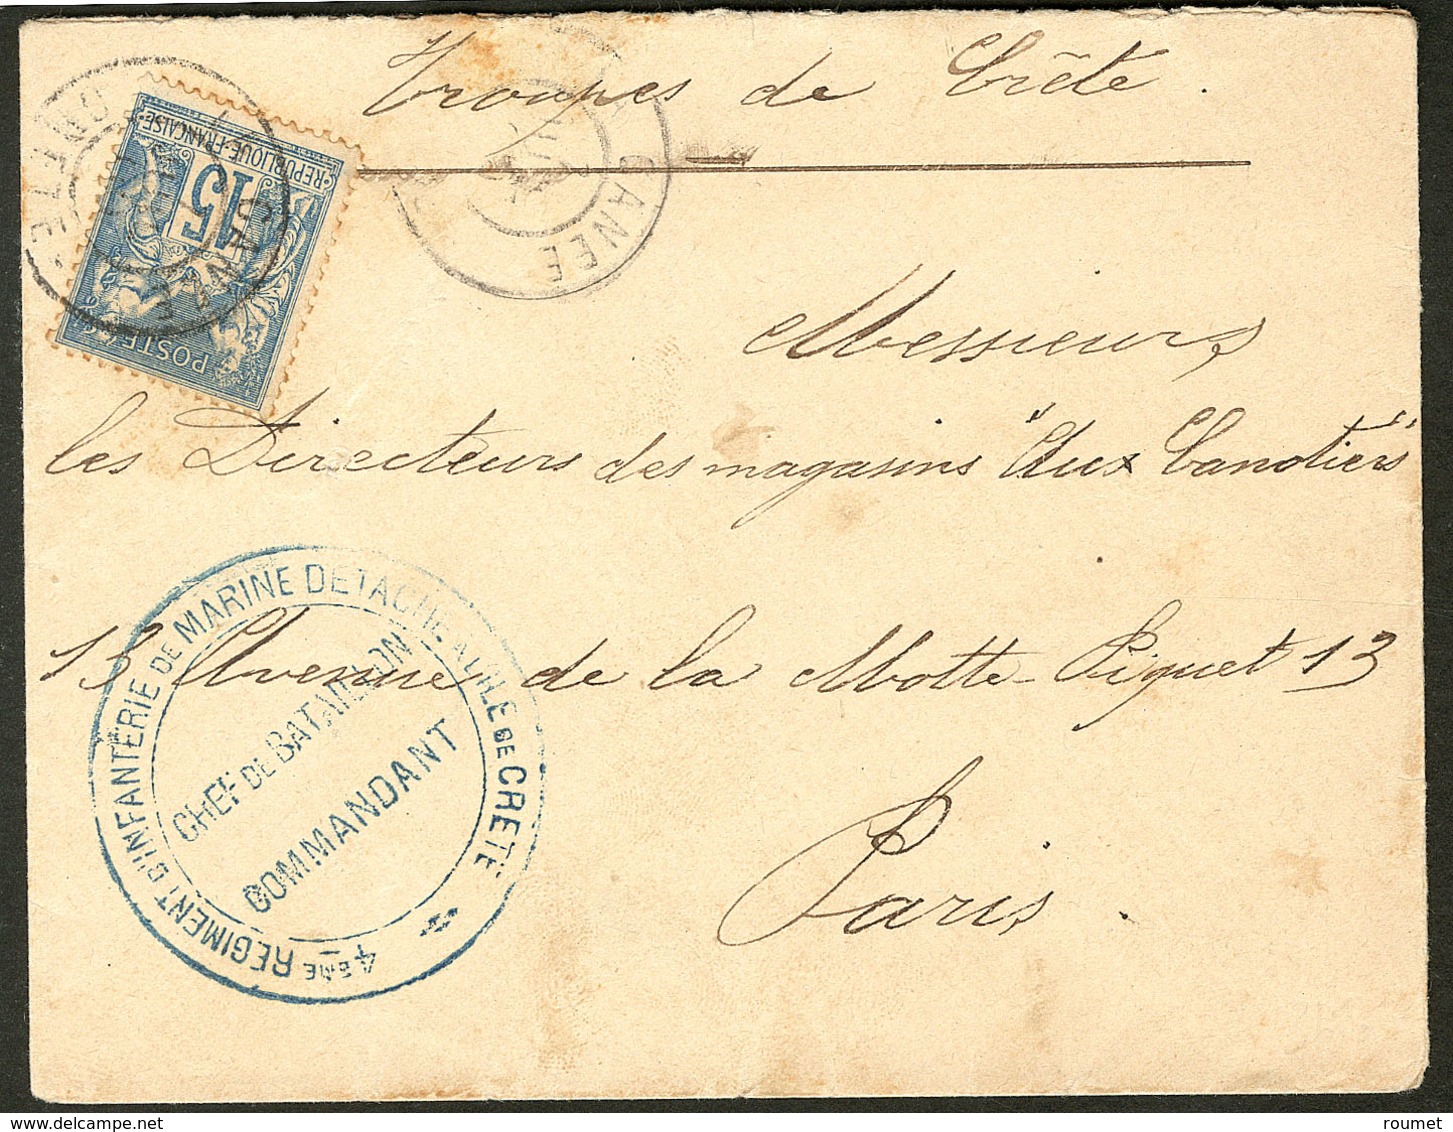 Troupes de Crête.
REPUBLIQUE FRANÇAISE
15
POSTE
LA CANEE
CRETE
LA CANEE
Messieurs
les Directeurs des magasins "Aux Canotiers"
13 Avenue de la Motte-Piquet 13
Paris.
4EME REGIMENT D'INFANTERIE DE MARINE DETACHE A L'ILE DE CRETE
CHEF DE BATAILLON
COMMANDANT
roumet